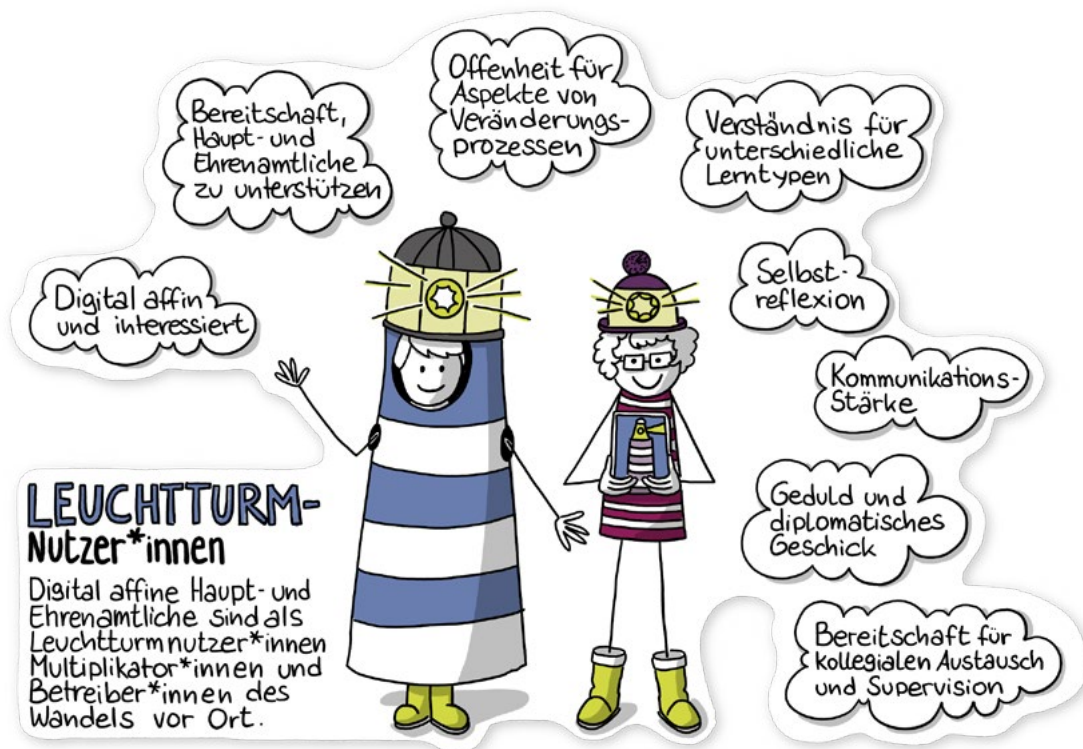 Digital affin
und interessiert
Bereitschaft,
Haupt- und
Ehrenamtliche
zu unterstützen
Offenheit für
Aspekte von
Veränderungs-
prozessen
Verständnis für
unterschiedliche
Lerntypen
Selbst-
reflexion
Kommunikations-
Stärke
Geduld und
diplomatisches
Geschick
Bereitschaft für
kollegialen Austausch
und Supervision
LEUCHTTURM-
Nutzer*innen
Digital affine Haupt- und
Ehrenamtliche sind als
Leuchtturmnutzer*innen
Multiplikator*innen und
Betreiber*innen des
Wandels vor Ort.